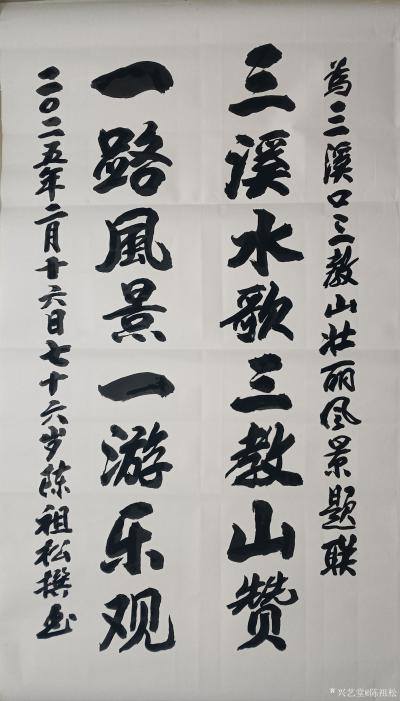 为三溪口三教山壮丽风景题联
三溪水歌三教山赞
一路風景一游乐观
二〇二五年二月十六日七十六岁陈祖松撰书
*兴艺堂@陈祖松